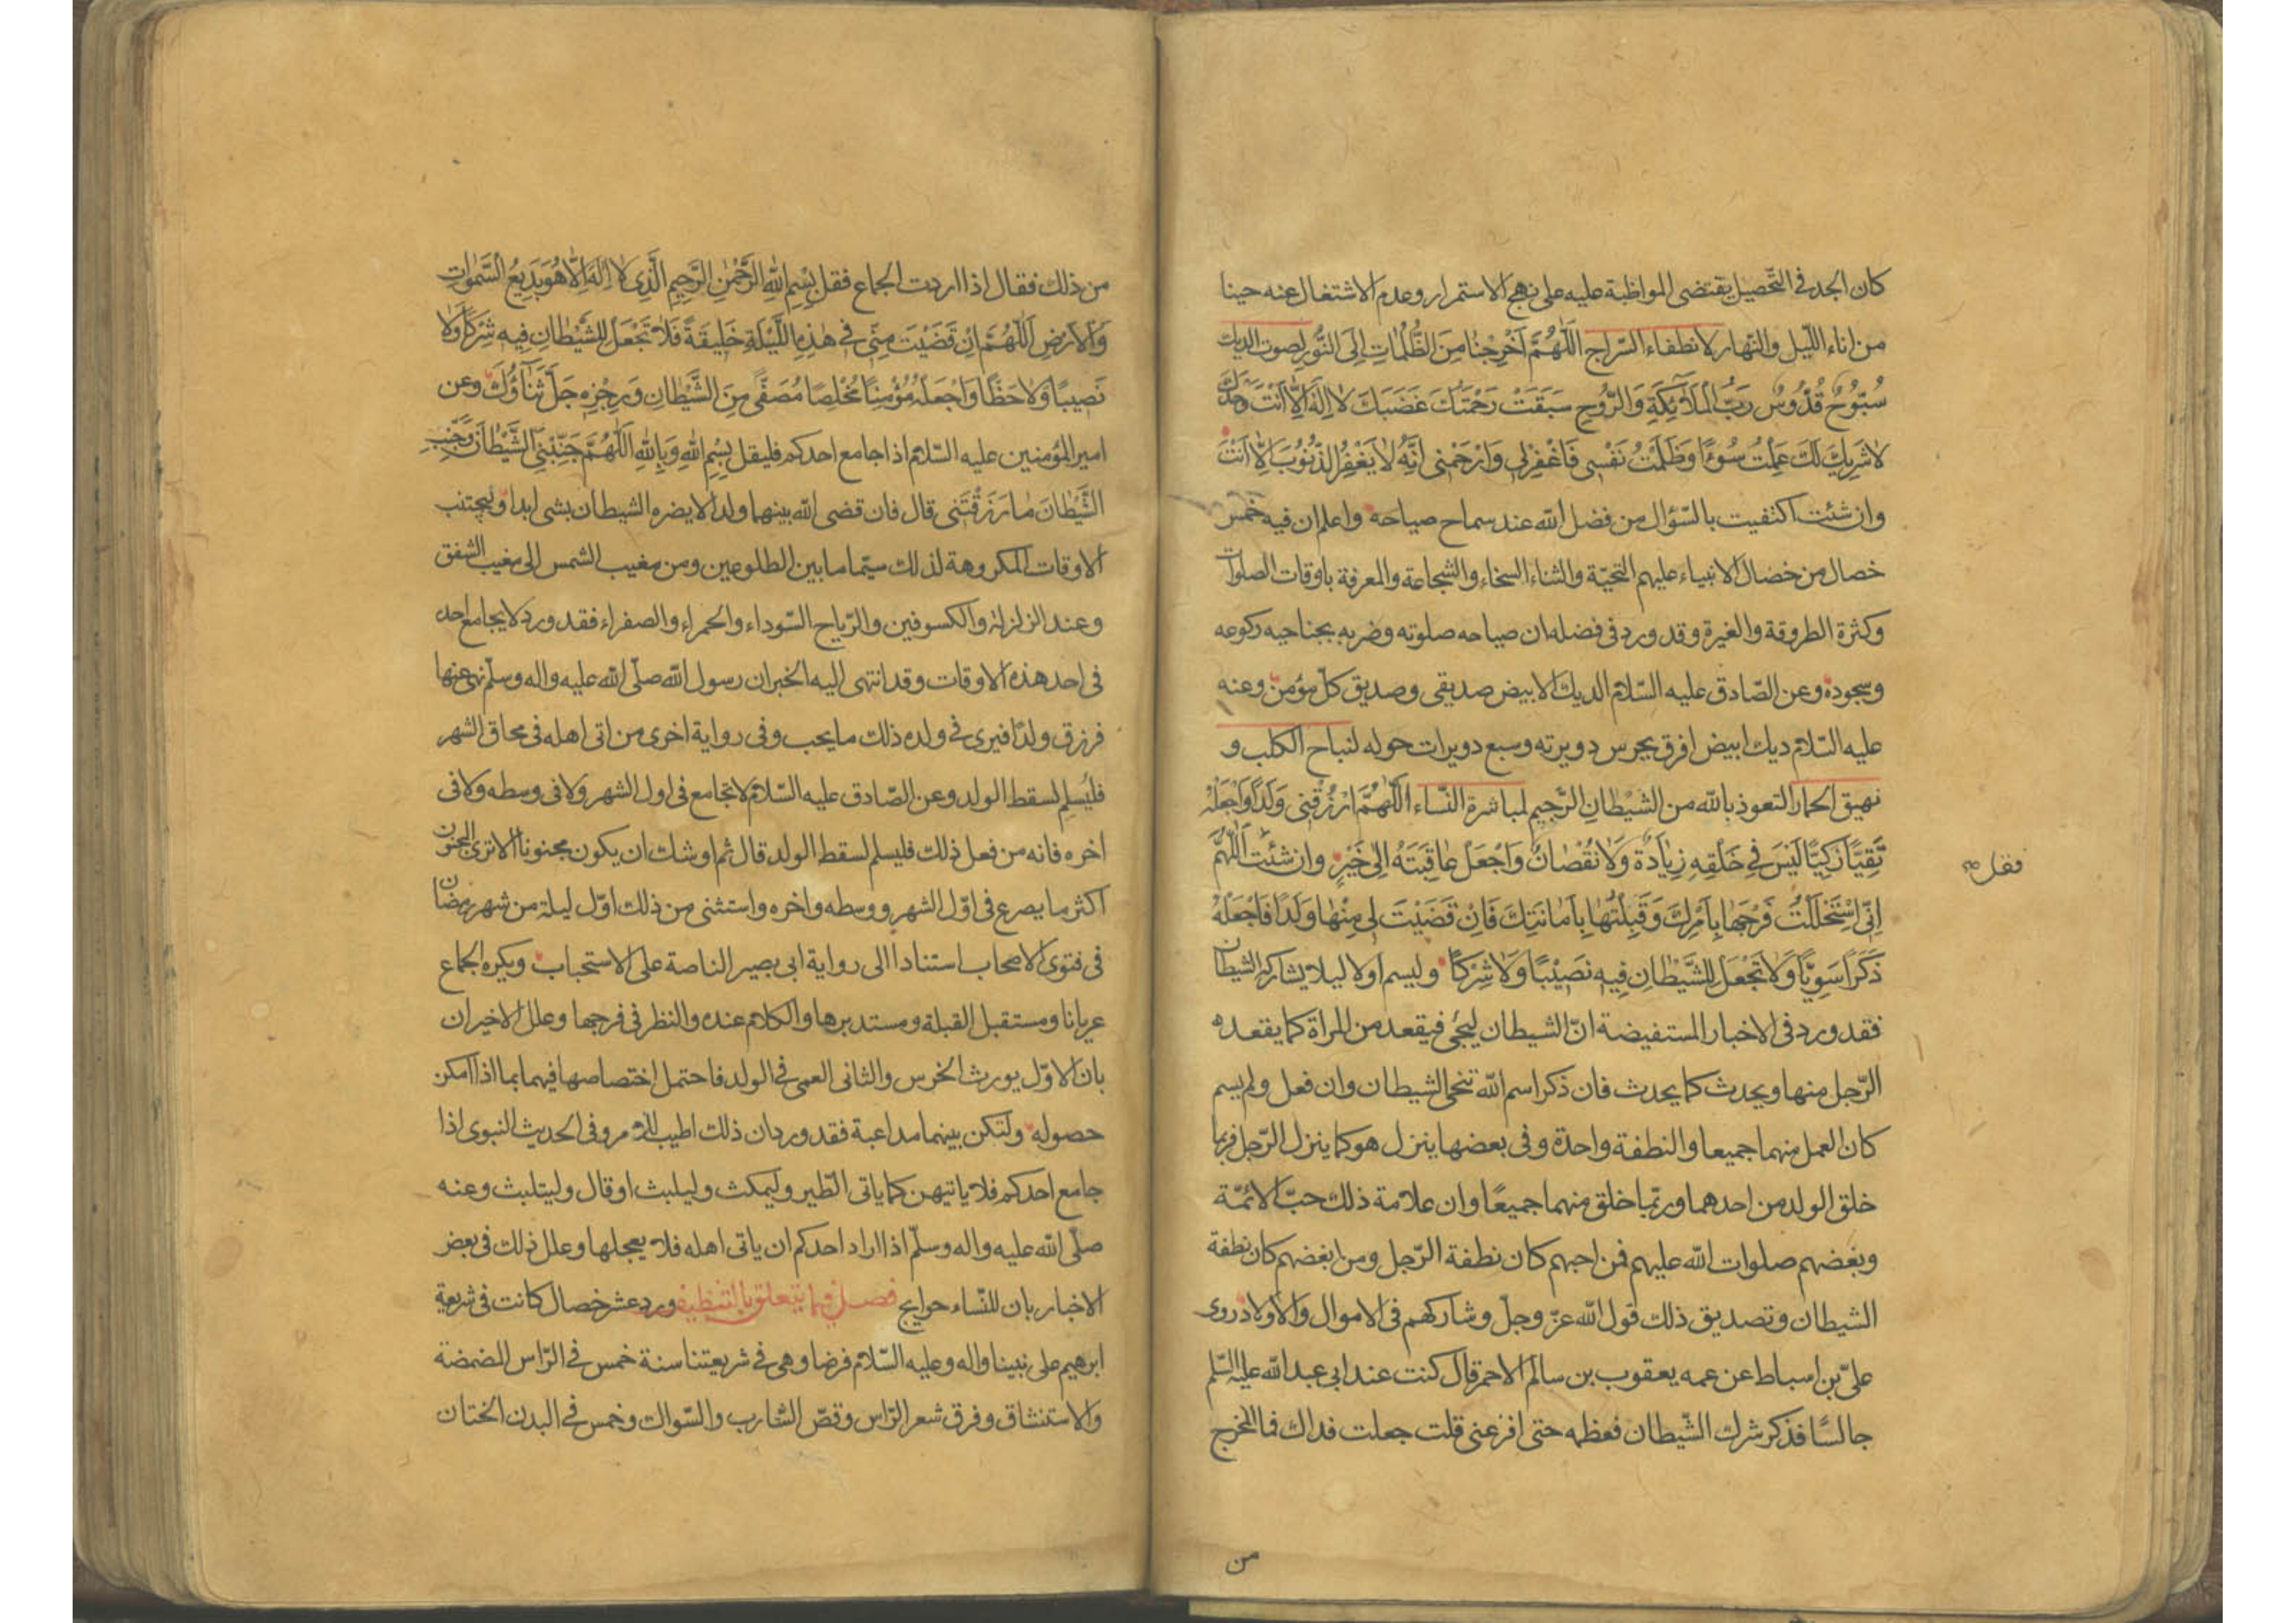 كان الجد فى التّحصيل يقتضى المواظبة عليه على نهج الاستمرار وعدم الاشتغال عنه حينا
من اناء اللّيل والنّهار لانطفاء السّراج اَللّٰهُمَّ اَخْرِجْنٰا مِنَ الظُّلُمٰاتِ اِلَى النُّورِ لصوت الديك
سُبُّوحٌ قُدُّوسٌ رَبُّ المَلَآئِكَةِ وَالرُّوحِ سَبَقَتْ رَحْمَتُكَ غَضَبَكَ لاٰ اِلٰهَ اِلّٰا اَنْتَ وَحْدَكَ
لاٰ شَرِيكَ لَكَ عَمِلْتُ سُوءًا وَظَلَمْتُ نَفْسِى فَاغْفِرْلِى وَارْحَمْنِى اِنَّهُ لاٰ يَغْفِرُ الذُّنُوبَ اِلّٰا اَنْتَ
وان شئت اكتفيت بالسّؤال من فضل اللّه عند سماح صياحه واعلم ان فيه خمس
خصال من خصال الانبياء عليهم التحيّة والثناء السخاء والشجاعة والمعرفة باوقات الصلوات
وكثرة الطروقة والغيرة وقد ورد فى فضله ان صياحه صلوته وضربه بجناحيه ركوعه
وسجوده وعن الصّادق عليه السّلام الديك الابيض صديقى وصديق كلّ مؤمن وعنه
عليه السّلام ديك ابيض افرق يحرس دويرته وسبع دويرات حوله لنباح الكلب و
نهيق الحمار التعوذ باللّه من الشيْطانِ الرّجيم لمباشرة النّساء اَللّٰهُمَّ ارْزُقْنِى وَلَدًا وَاجْعَلْهُ
تَقِيًّا زَكِيًّا لَيْسَ فِى خَلْقِهِ زِيٰادَةٌ وَلاٰ نُقْصٰانٌ وَاجْعَلْ عٰاقِبَتَهُ اِلٰى خَيْرٍ وان شئت اَللّٰهُمَّ
فقل صح
اِنِّى اِسْتَحْلَلْتُ فَرْجَهٰا بِاَمْرِكَ وَقَبِلْتُهٰا بِاَمٰانَتِكَ فَاِنْ قَضَيْتَ لِى مِنْهٰا وَلَدًا فَاجْعَلْهُ
ذَكَرًا سَوِيًّا وَلاٰ تَجْعَلْ لِلشَّيْطٰانِ فِيهِ نَصِيْبًا وَلاٰ شِرْكًا وليسم اولا ليلا يشاركه الشيطان
فقد ورد فى الاخبار المستفيضة انّ الشيطان ليجئ فيقعد من المراة كما يقعده
الرّجل منها ويحدث كما يحدث فان ذكر اسم اللّه تنحى الشيطان وان فعل ولم يسم
كان العمل منهما جميعا والنطفة واحدة وفى بعضها ينزل هو كما ينزل الرّجل فربما
خلق الولد من احدهما وربّما خلق منهما جميعًا وان علامة ذلك حبّ الائمّة
وبغضهم صلوات اللّه عليهم فمن احبهم كان نطفة الرّجل ومن ابغضهم كان نطفة
الشيطان وتصديق ذلك قول اللّه عزّ وجلّ وشاركهم فى الاموال والاولاد روى
علىّ بن اسباط عن عمه يعقوب بن سالم الاحمر قال كنت عند ابى عبد اللّه عليه السّلم
جالسًا فذكر شرك الشّيطان فعظمه حتى افزعنى قلت جعلت فداك فما المخرج
من
من ذلك فقال اذا اردت الجماع فقل بِسْمِ اللّٰهِ الرَّحْمٰنِ الرَّحِيمِ الَّذِى لاٰ اِلٰهَ اِلّٰا هُوَ بَدِيعُ السَّمٰوٰاتِ
وَالْاَرْضِ اَللّٰهُمَّ اِنْ قَضَيْتَ مِنِّى فِى هٰذِهِ اللَّيْلَةِ خَلِيفَةً فَلاٰ تَجْعَلْ لِلشَّيْطٰانِ فِيهِ شِرْكًا وَلاٰ
نَصِيبًا وَلاٰ حَظًّا وَاجْعَلْهُ مُؤْمِنًا مُخْلِصًا مُصَفًّى مِنَ الشَّيْطٰانِ وَرِجْزِهِ جَلَّ ثَنٰآؤُكَ وعن
امير المؤمنين عليه السّلام اذا جامع احدكم فليقل بِسْمِ اللّٰهِ وَبِاللّٰهِ اَللّٰهُمَّ جَنِّبْنِى الشَّيْطٰانَ وَجَنِّبِ
الشَّيْطٰانَ مٰا رَزَقْتَنِى قال فان قضى اللّه بينهما ولدا لا يضره الشيطان بشى ابدا وليجتنب
الاوقات المكروهة لذلك سيّما ما بين الطلوعين ومن مغيب الشمس الى مغيب الشفق
وعند الزلزلة والكسوفين والرّياح السّوداء والحمراء والصفراء فقد ورد لا يجامع احد
فى احد هذه الاوقات وقد انتهى اليه الخبر ان رسول اللّه صلّى اللّه عليه واله وسلّم نهى عنها
فرزق ولدًا فيرى فى ولده ذلك ما يحب وفى رواية اخرى من اتى اهله فى محاق الشهر
فليُسلِم لسقط الولد وعن الصّادق عليه السّلام لا تجامع فى اول الشهر ولا فى وسطه ولا فى
اخره فانه من فعل ذلك فليسلم لسقط الولد قال ثم اوشك ان يكون مجنونا الا ترى المجنون
اكثر ما يصرع فى اوّل الشهر ووسطه واخره واستثنى من ذلك اوّل ليلة من شهر رمضان
فى فتوى الاصحاب استنادا الى رواية ابى بصير الناصة على الاستحباب ويكره الجماع
عريانا ومستقبل القبلة ومستدبرها والكلام عنده والنظر فى فرجها وعلل الاخيران
بان الاوّل يورث الخرس والثانى العمى فى الولد فاحتمل اختصاصها فيهما بما اذا امكن
حصوله ولتكن بينهما مداعبة فقد ورد ان ذلك اطيب للامر وفى الحديث النبوى اذا
جامع احدكم فلا ياتيهن كما ياتى الطّير وليمكث وليلبث او قال وليتلبث وعنه
صلّى اللّه عليه واله وسلّم اذا اراد احدكم ان ياتى اهله فلا يعجلها وعلل ذلك فى بعض
الاخبار بان للنّساء حوايج فصل فيما يتعلق بالتنظيف ورد عشر خصال كانت فى شريعة
ابرهيم على نبينا واله وعليه السّلام فرضا وهى فى شريعتنا سنة خمس فى الرّاس المضمضة
والاستنشاق وفرق شعر الرّاس وقصّ الشارب والسّواك وخمس فى البدن الختان